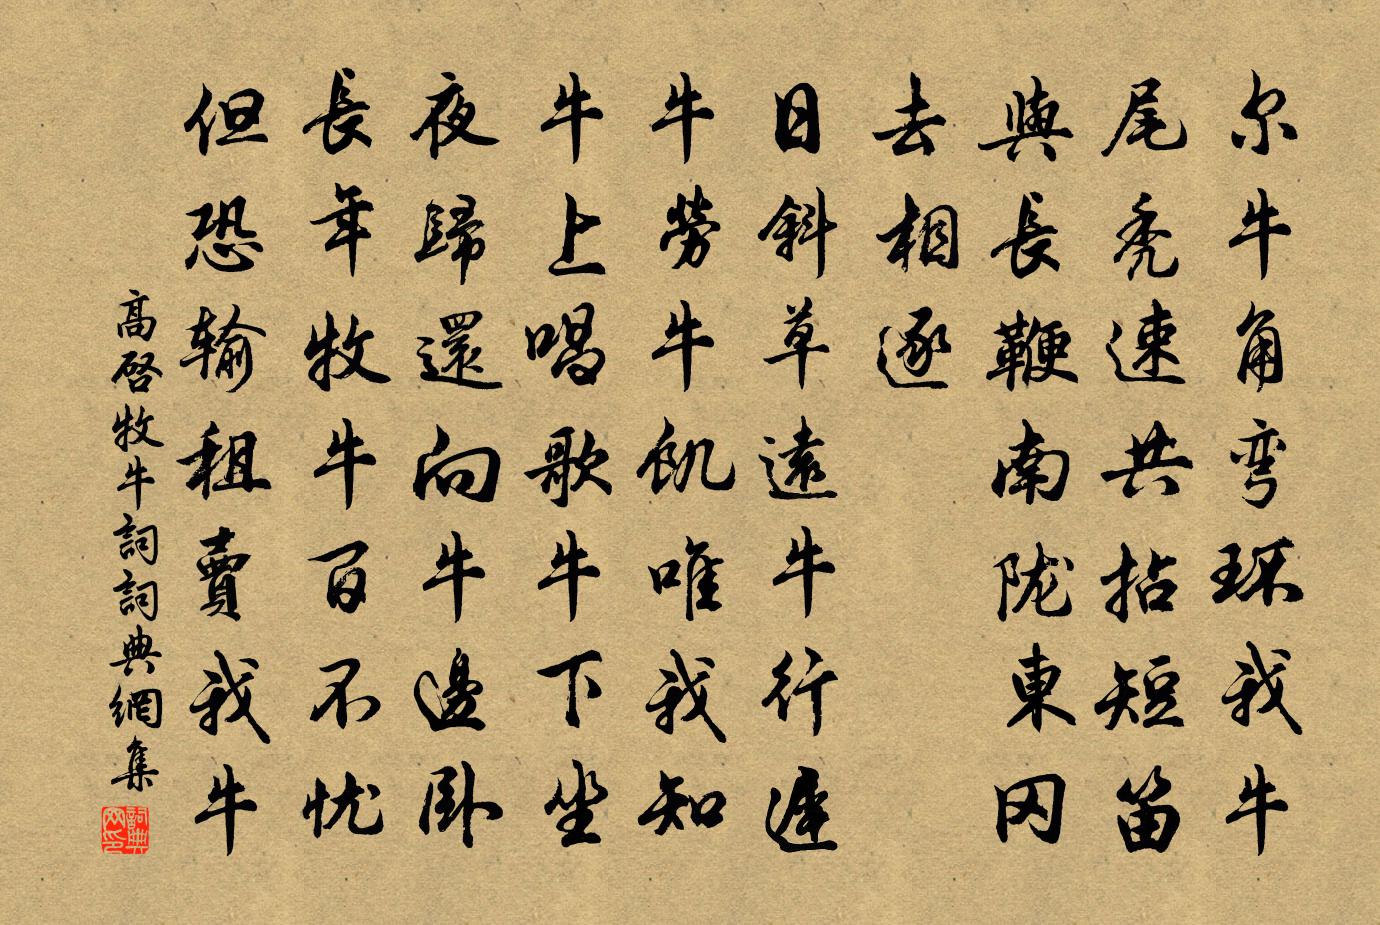 尔牛角弯环我牛
尾秃速共拈短笛
與長鞭南陇東冈
去相逐
日斜草遠牛行遲
牛勞牛飢唯我知
牛上唱歌牛下坐
夜歸還向牛邊卧
長年牧牛百不忧
但恐输租賣我牛
高啓牧牛詞詞典網集
詞典网印